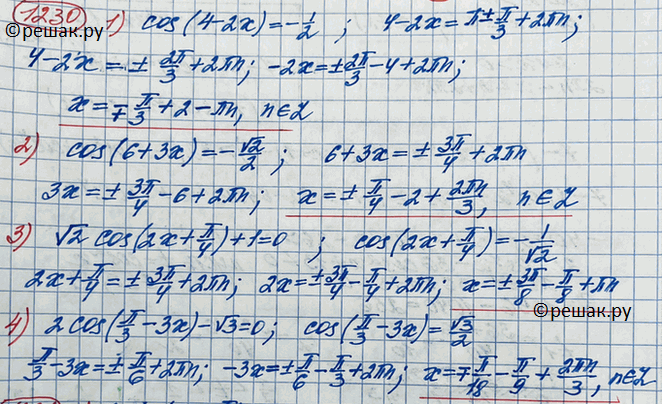 1230 1) cos(4-2x)=-1/2 ; 4-2x=π±π/3+2πn;
©решак.ру
4-2x=±2π/3+2πn; -2x=±2π/3-4+2πn;
x=∓π/3+2-πn, n∈Z
2) cos(6+3x)=-√2/2 ; 6+3x=±3π/4+2πn
3x=±3π/4-6+2πn; x=±π/4-2+2πn/3, n∈Z
3) √2 cos(2x+π/4)+1=0 ; cos(2x+π/4)=-1/√2
2x+π/4=±3π/4+2πn; 2x=±3π/4-π/4+2πn; x=±3π/8-π/8+πn
©решак.ру
4) 2cos(π/3-3x)-√3=0; cos(π/3-3x)=√3/2
π/3-3x=±π/6+2πn; -3x=±π/6-π/3+2πn; x=∓π/18-π/9+2πn/3, n∈Z